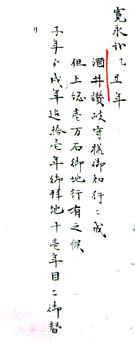 寛永弐乙丑年
酒井讃岐守様御知行ニ成
但上総壱万石御地行有之候
子年ゟ戌年迄拾壱年御拝地十壱年目ニ御替